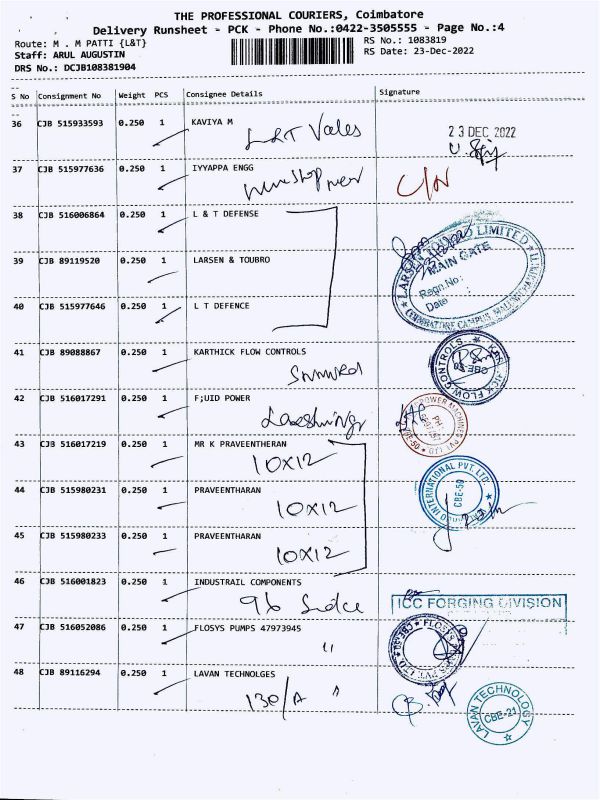 THE PROFESSIONAL COURIERS, Coimbatore
Delivery Runsheet - PCK - Phone No.:0422-3505555 - Page No.:4
Route: M . M PATTI {L&T} RS No.: 1083819
Staff: ARUL AUGUSTIN RS Date: 23-Dec-2022
DRS No.: DCJB108381904
S No Consignment No Weight PCS Consignee Details Signature
36 CJB 515933593 0.250 1 KAVIYA M
L&T Vales
23 DEC 2022
37 CJB 515977636 0.250 1 IYYAPPA ENGG
C/N
38 CJB 516006864 0.250 1 L & T DEFENSE
39 CJB 89119520 0.250 1 LARSEN & TOUBRO
LIMITED
MAIN GATE
Regn No:
Date
COIMBATORE CAMPUS
40 CJB 515977646 0.250 1 L T DEFENCE
41 CJB 89088867 0.250 1 KARTHICK FLOW CONTROLS
FLOW CONTROLS
42 CJB 516017291 0.250 1 F;UID POWER
43 CJB 516017219 0.250 1 MR K PRAVEENTHERAN
10X12
44 CJB 515980231 0.250 1 PRAVEENTHARAN
10X12
INTERNATIONAL PVT. LTD.
CBE-50
45 CJB 515980233 0.250 1 PRAVEENTHARAN
10X12
46 CJB 516001823 0.250 1 INDUSTRAIL COMPONENTS
96
ICC FORGING DIVISION
47 CJB 516052086 0.250 1 FLOSYS PUMPS 47973945
"
48 CJB 89116294 0.250 1 LAVAN TECHNOLGES
130/A "
LAVAN TECHNOLOGY
CBE-21